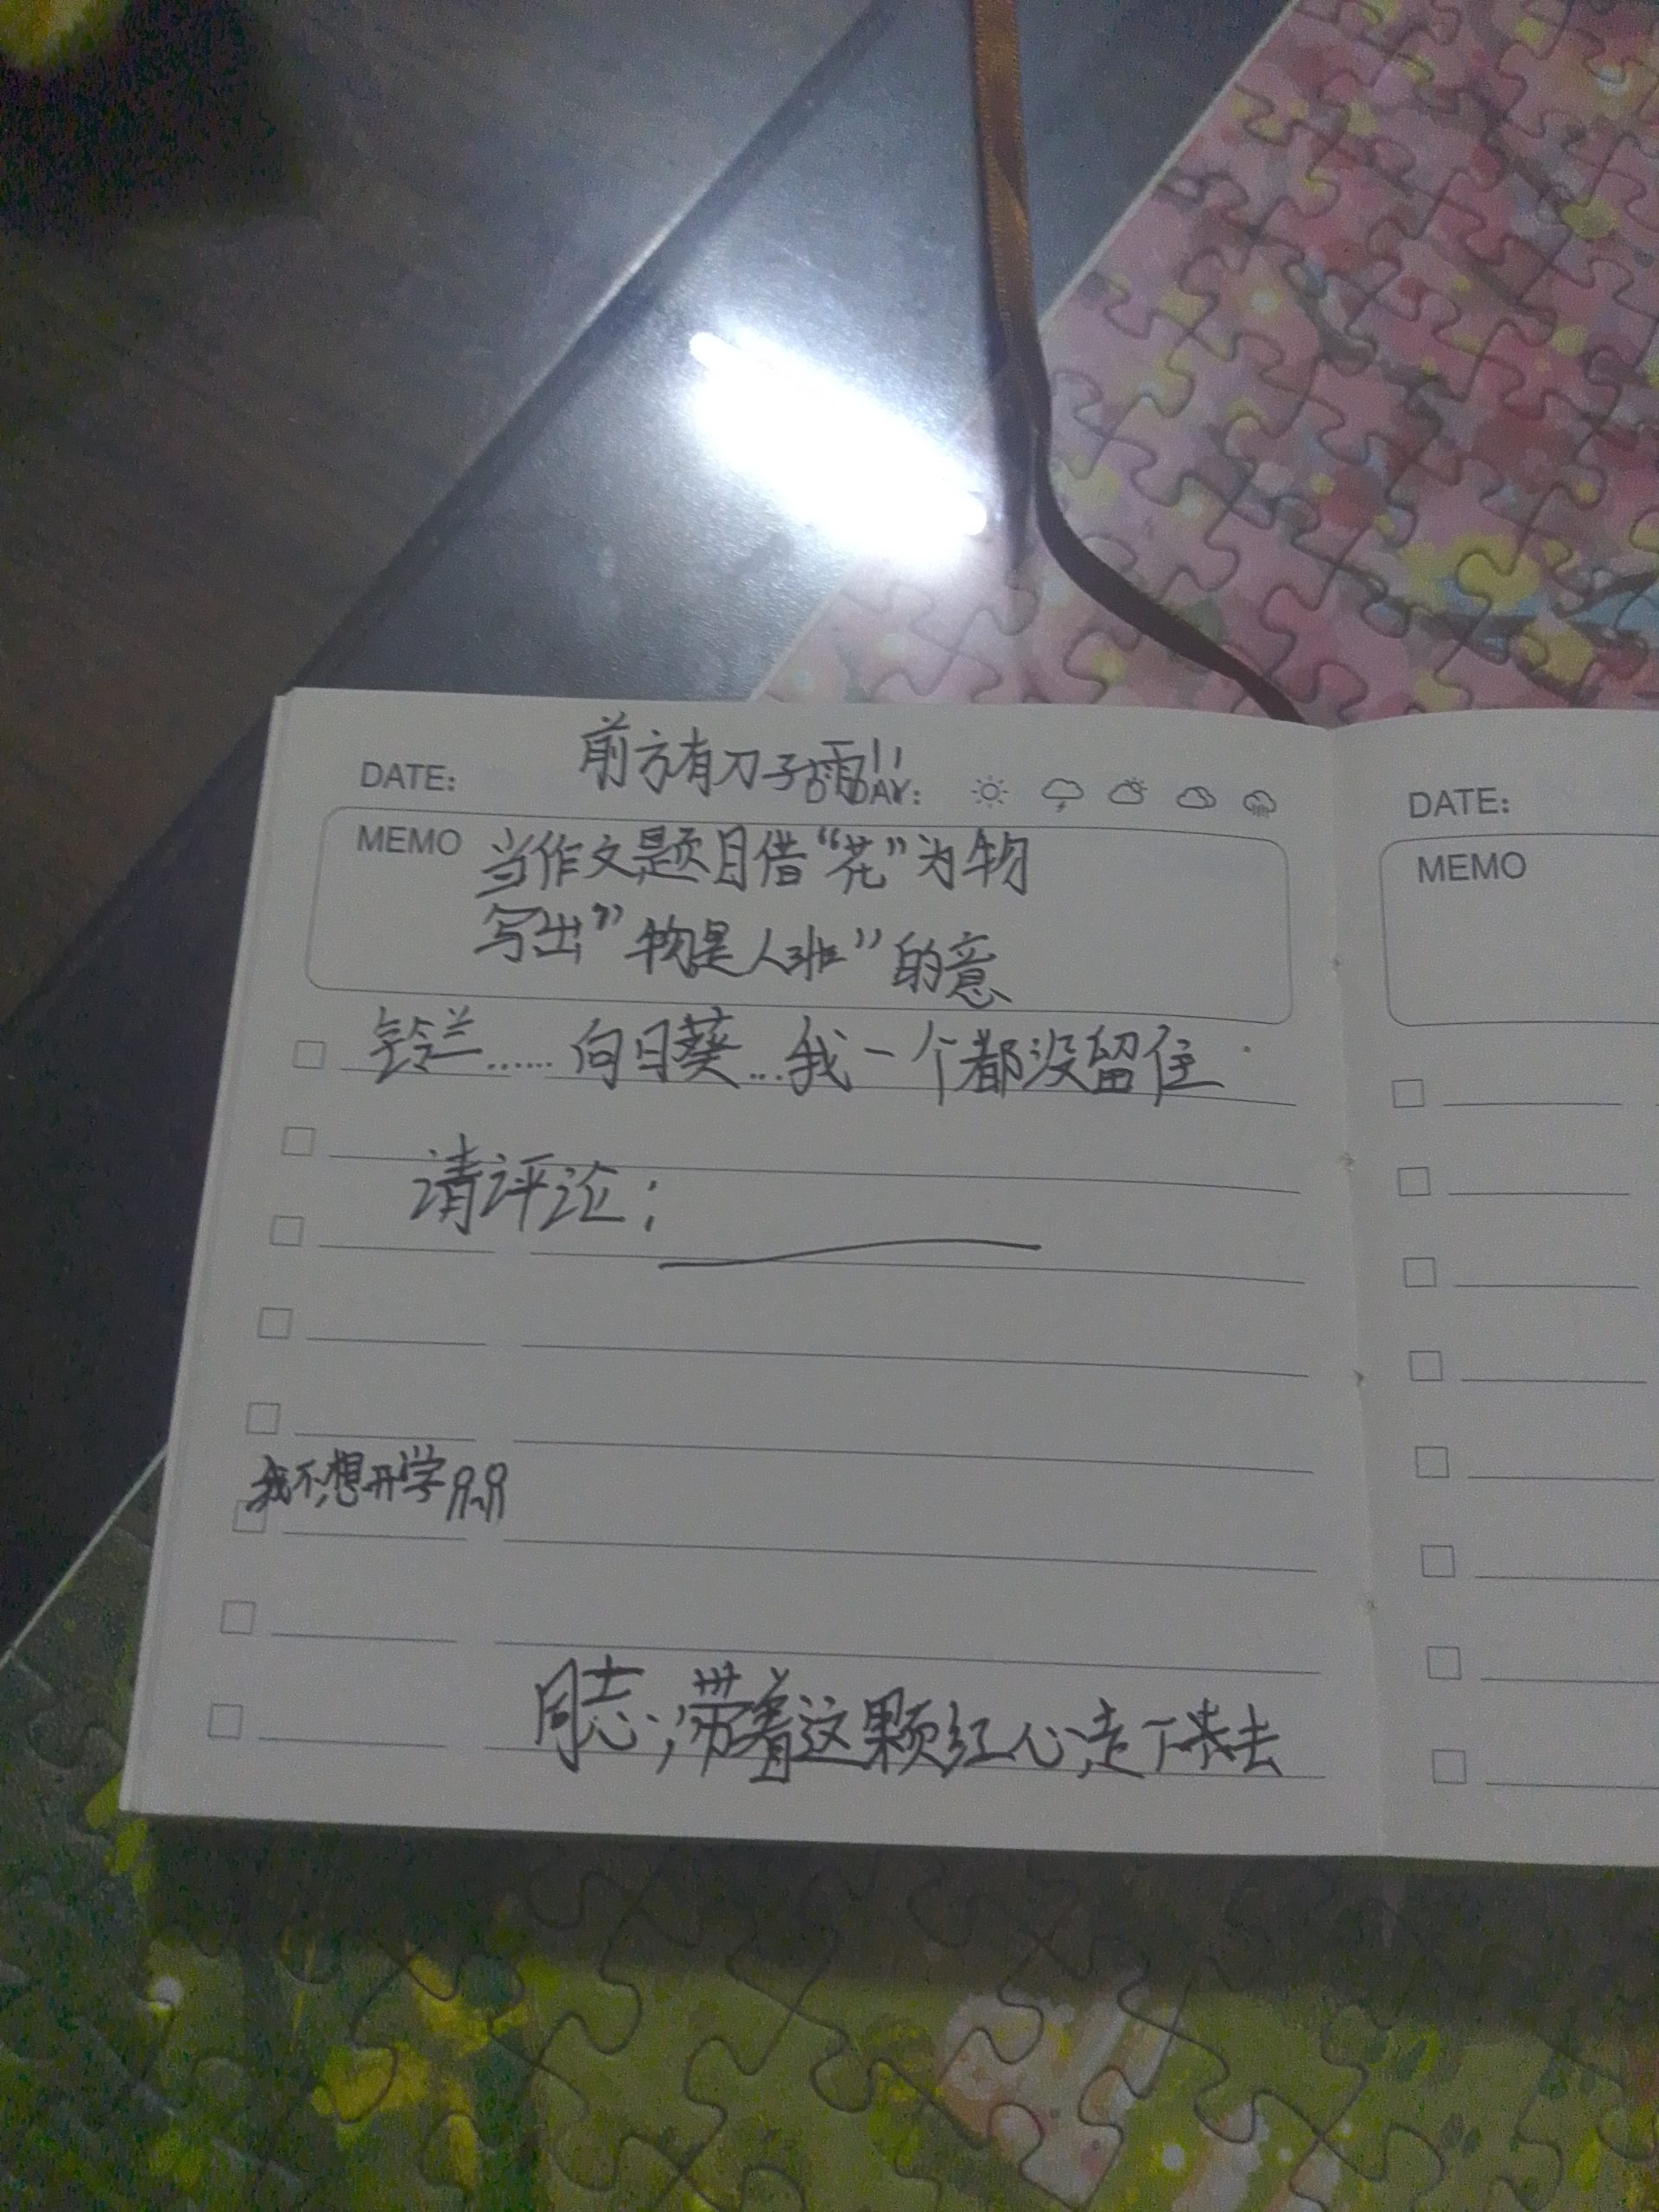 前方有刀子雨!!
DATE: DAY:
MEMO 当作文题目借“花”为物
写出”物是人班”的意
铃兰……向日葵...我一个都没留住
请评论:
我不想开学
同志,带着这颗红心走下去
DATE:
MEMO